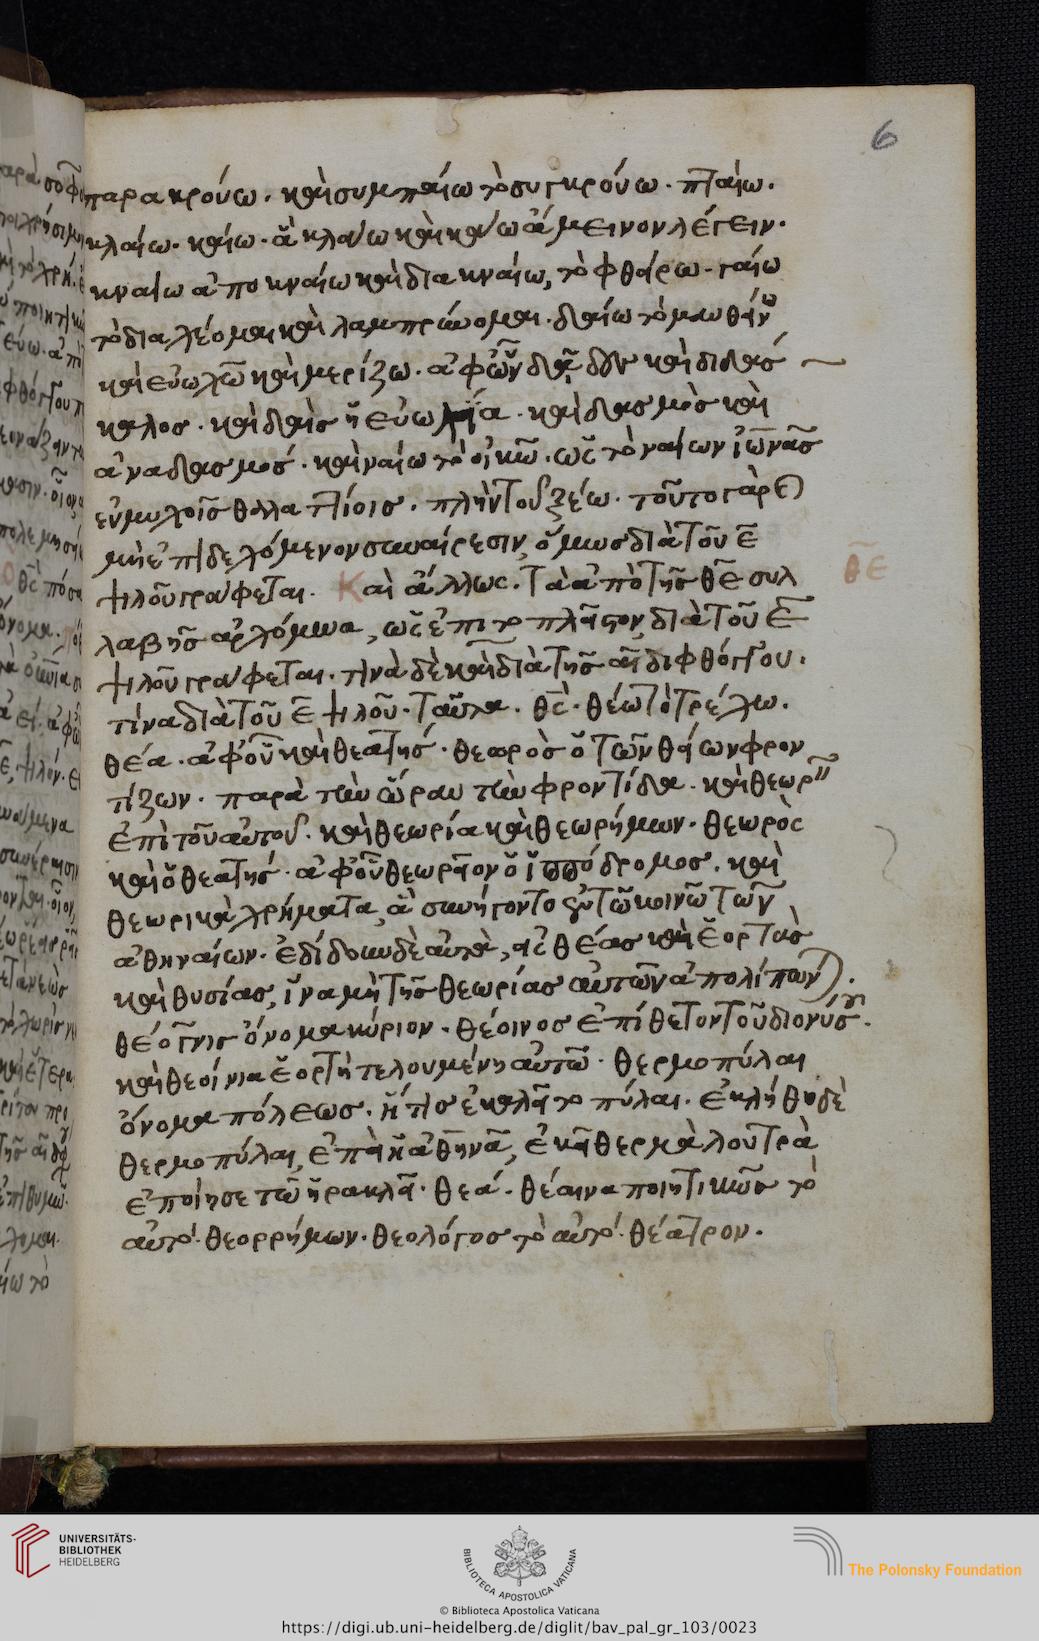 6
παρακρούω. καὶ συμπαίω τὸ συγκρούω. πταίω.
κλαίω. καίω. ἃ κλάω καὶ κάω ἄμεινον λέγειν.
κναίω ἀποκναίω καὶ διακναίω, τὸ φθείρω. γαίω
τὸ καὶ λαμπρύνομαι. δαίω τὸ μανθάνω
καὶ εὐωχῶ καὶ μερίζω. ἀφ' ὧν καὶ διδάσ
καλος. καὶ δαὶς ἡ εὐωχία. καὶ δασμὸς καὶ
ἀναδασμός. καὶ ναίω τὸ οἰκῶ. ὡς τὸ ναίων
ἐν μυχοῖς θαλαττίοις. πλὴν τοῦ ξέω. τοῦτο γὰρ
μὴ ἐπιδεχόμενον συναίρεσιν, ὅμως διὰ τοῦ ε
ψιλοῦ γράφεται. Καὶ ἄλλως. Τὰ ἀπὸ τῆς θε συλ
θε
λαβῆς ἀρχόμενα, ὡς ἐπὶ τὸ πλεῖστον, διὰ τοῦ ε
ψιλοῦ γράφεται. τινὰ δὲ καὶ διὰ τῆς αι διφθόγγου.
τίνα διὰ τοῦ ε ψιλοῦ. ταῦτα. θέω τὸ τρέχω.
θέα. ἀφ' οὗ καὶ θεατής. θεωρὸς ὁ τῶν θείων φρον
τίζων. παρὰ τὴν ὤραν τὴν φροντίδα. καὶ
ἐπὶ τοῦ αὐτοῦ. καὶ θεωρία καὶ θεωρήμων. θεωρὸς
καὶ ὁ θεατής. ἀφ' οὗ θεωρεῖον ὁ ἱππόδρομος. καὶ
θεωρικὰ χρήματα, ἃ συνήγοντο ἐν τῷ κοινῷ τῶν
ἀθηναίων. ἐδίδουν δὲ αὐτὰ, εἰς θέας καὶ ἑορτὰς
καὶ θυσίας, ἵνα μὴ τῆς θεωρίας αὐτῶν
θέογνις ὄνομα κύριον. θέοινος ἐπίθετον τοῦ διονύσου.
καὶ θεοίνια ἑορτὴ τελουμένη αὐτῷ. θερμοπύλαι
ὄνομα πόλεως. ἥτις ἐκαλεῖτο πύλαι. ἐκλήθη δὲ
θερμοπύλαι, ἐπεὶ ἡ ἀθηνᾶ, ἐκεῖ θερμὰ λουτρὰ
ἐποίησε τῷ ἡρακλεῖ. θεά. θέαινα ποιητικῶς τὸ
αὐτό. θεορρήμων. θεολόγος τὸ αὐτό. θέατρον.
UNIVERSITÄTS-
BIBLIOTHEK
HEIDELBERG
BIBLIOTECA APOSTOLICA VATICANA
The Polonsky Foundation
© Biblioteca Apostolica Vaticana
https://digi.ub.uni-heidelberg.de/diglit/bav_pal_gr_103/0023